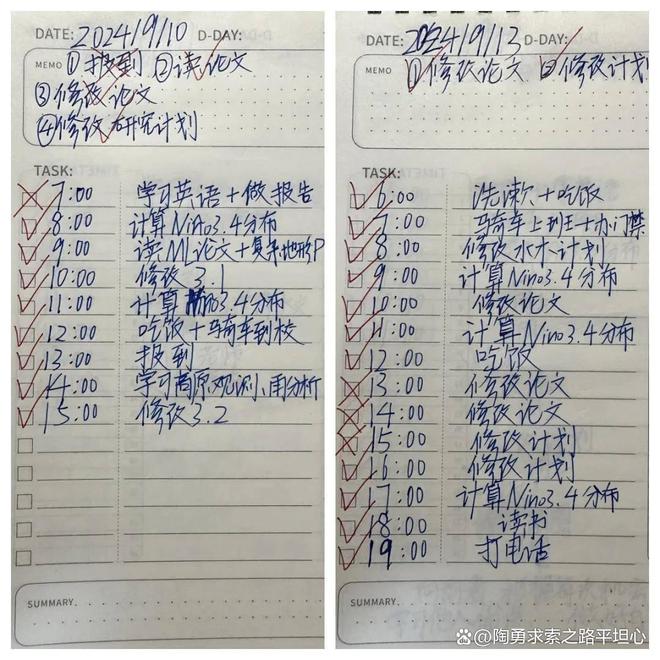 DATE: 2024/9/10 D-DAY:
MEMO ①报到 ②读论文
③修改论文
④修改研究计划
TASK:
7:00 学习英语+做报告
8:00 计算Nino3.4分布
9:00 读ML论文+复杂地形P
10:00 修改3.1
11:00 计算Nino3.4分布
12:00 吃饭+骑车到校
13:00 报到
14:00 学习高原观测、再分析
15:00 修改3.2
SUMMARY.
DATE: 2024/9/13 D-DAY:
MEMO ①修改论文 ②修改计划
TASK:
6:00 洗漱+吃饭
7:00 骑车上班+办门禁
8:00 修改水木计划
9:00 计算Nino3.4分布
10:00 修改论文
11:00 计算Nino3.4分布
12:00 吃饭
13:00 修改论文
14:00 修改论文
15:00 修改计划
16:00 修改计划
17:00 计算Nino3.4分布
18:00 读书
19:00 打电话
SUMMARY.
@陶勇求索之路平坦心